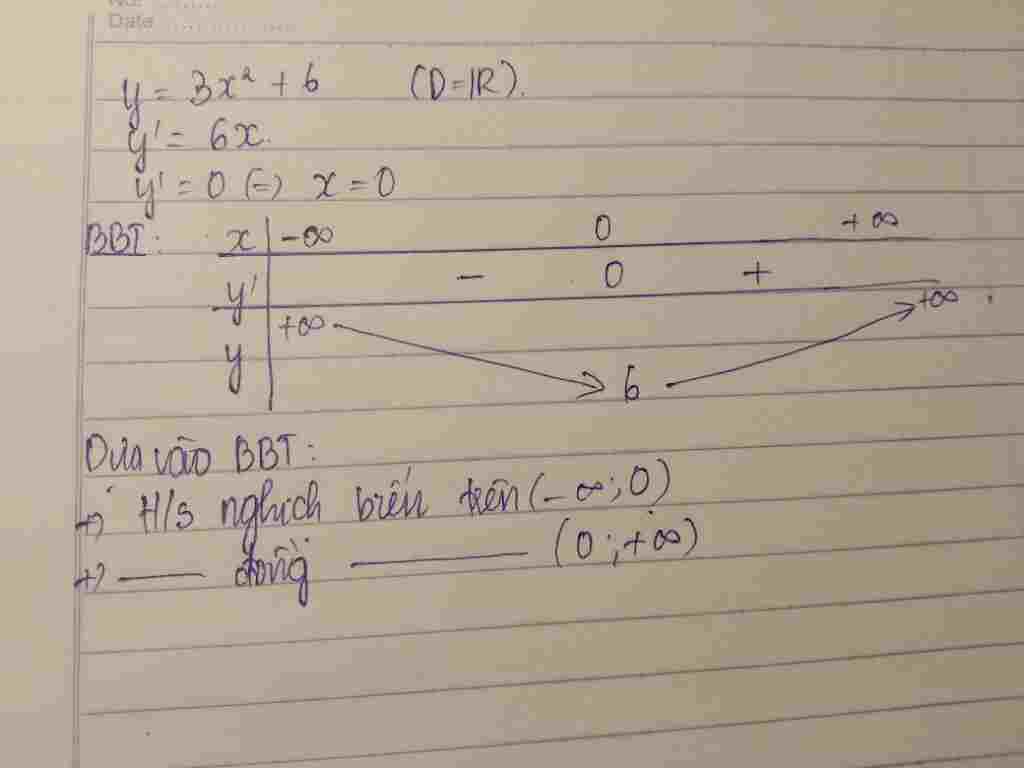 No.: ........
Date ..................
y = 3x² + 6 (D=ℝ).
y' = 6x.
y' = 0 (=) x = 0
BBT: x -∞ 0 +∞
y' - 0 +
+∞ +∞
y 6
Dựa vào BBT:
+) H/s nghịch biến trên (-∞; 0)
+) —— đồng ———— (0; +∞)